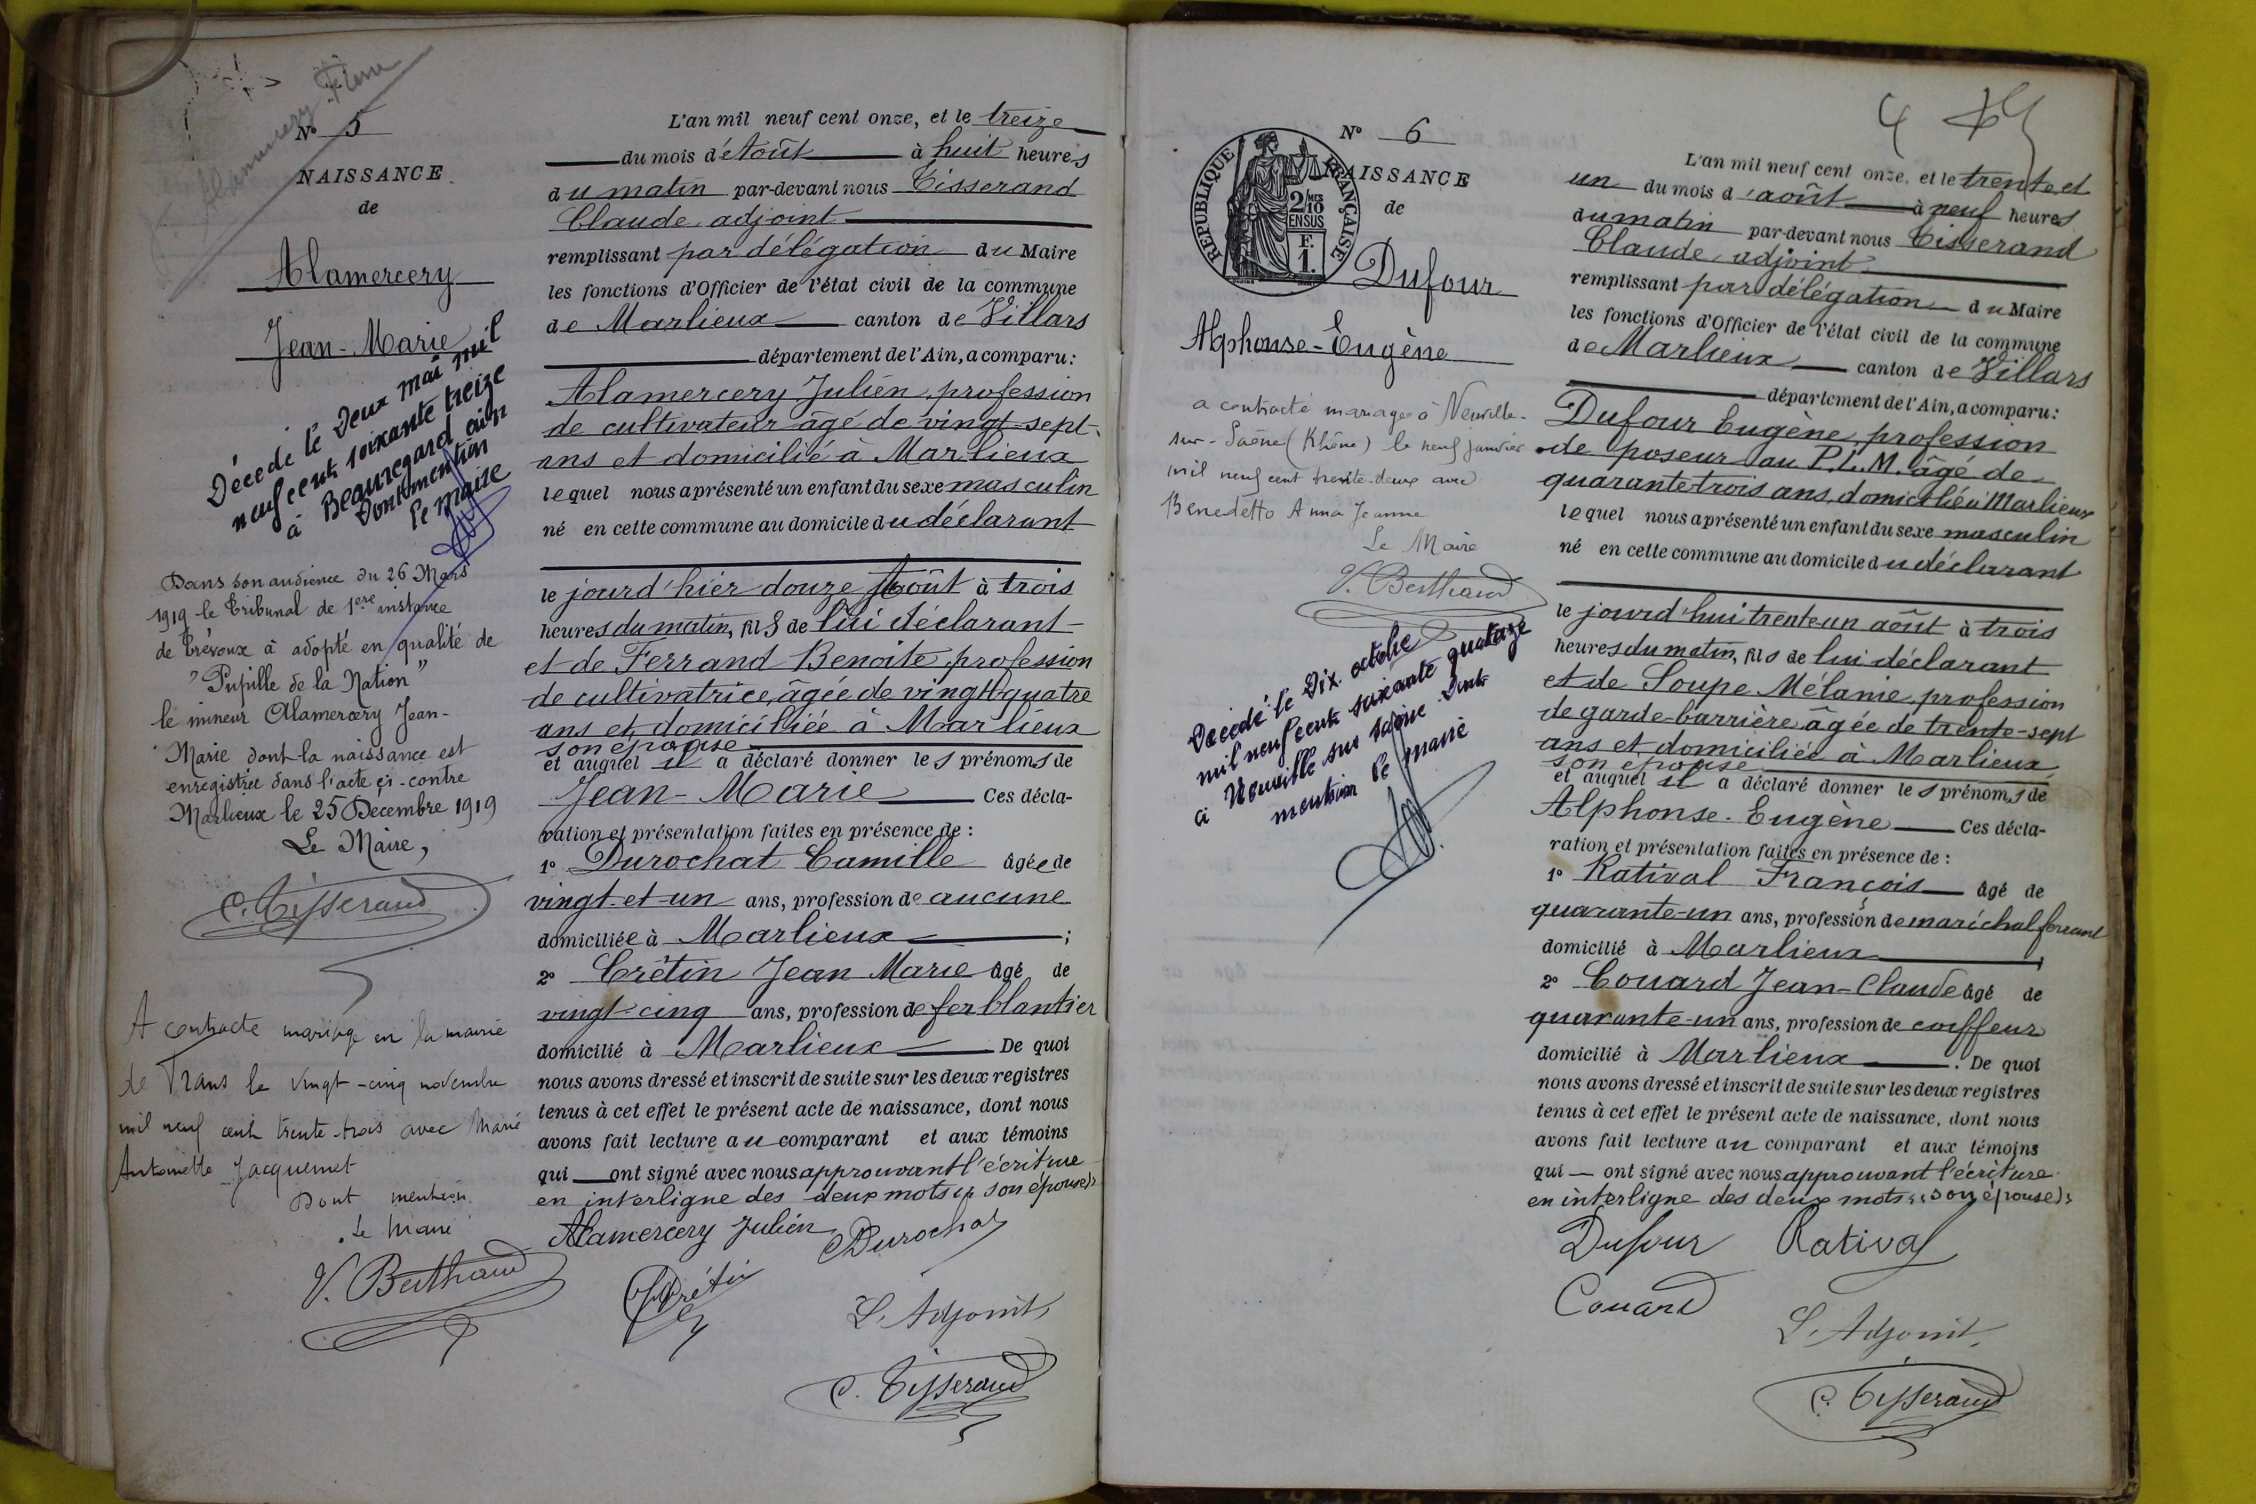 Alamercery
N° 5
NAISSANCE
de
Alamercery
Jean-Marie
Décédé le Deux mai mil
neuf cent soixante treize
à Beauregard ain
Dont mention
le maire
Dans son audience du 26 Mars
1919 le Tribunal de 1ere instance
de Trévoux à adopté en qualité de
"Pupille de la Nation"
le mineur Alamercery Jean-
Marie dont la naissance est
enregistrée dans l'acte çi-contre
Marlieux le 25 Decembre 1919
Le Maire,
C. Tisserand
A contracte mariage en la mairie
de Trans le vingt-cinq novembre
mil neuf cent trente-trois avec Marie
Antoinette Jacquemet
Dont mention
Le Maire
V. Berthaud
L'an mil neuf cent onze, et le treize
du mois d'Août à huit heures
du matin par-devant nous Tisserand
Claude, adjoint
remplissant par délégation du Maire
les fonctions d'Officier de l'état civil de la commune
de Marlieux canton de Villars
département de l'Ain, a comparu:
Alamercery Julien, profession
de cultivateur âgé de vingt-sept
ans et domicilié à Marlieux
lequel nous a présenté un enfant du sexe masculin
né en cette commune au domicile du déclarant
le jourd'hier douze Août à trois
heures du matin, fils de lui déclarant
et de Ferrand Benoite, profession
de cultivatrice, âgée de vingt-quatre
ans et domiciliée à Marlieux
son épouse
et auquel il a déclaré donner les prénoms de
Jean-Marie Ces décla-
ration et présentation faites en présence de :
1° Durochat Camille âgée de
vingt-et-un ans, profession de aucune
domiciliée à Marlieux ;
2° Crétin Jean Marie âgé de
vingt-cinq ans, profession de ferblantier
domicilié à Marlieux De quoi
nous avons dressé et inscrit de suite sur les deux registres
tenus à cet effet le présent acte de naissance, dont nous
avons fait lecture au comparant et aux témoins
qui ont signé avec nous approuvant l'écriture
en interligne des deux mots « son épouse »
Alamercery Julien CDurochat
Crétin
L'Adjoint,
C. Tisserand
4
N° 6
NAISSANCE
de
RÉPUBLIQUE FRANÇAISE
2/10
EN SUS
F.
1.
Dufour
Alphonse-Eugène
a contracté mariage à Neuville-
sur-Saône (Rhône) le neuf janvier
mil neuf cent trente-deux avec
Benedetto Anna Jeanne
Le Maire
V. Berthaud
Décédé le Dix octobre
mil neuf cent soixante quatorze
à Neuville sur Saône Dont
mention le maire
L'an mil neuf cent onze, et le trente et
un du mois d'août à neuf heures
du matin par-devant nous Tisserand
Claude, adjoint
remplissant par délégation du Maire
les fonctions d'Officier de l'état civil de la commune
de Marlieux canton de Villars
département de l'Ain, a comparu:
Dufour Eugène, profession
de poseur au P.L.M. âgé de
quarante-trois ans, domicilié à Marlieux
lequel nous a présenté un enfant du sexe masculin
né en cette commune au domicile du déclarant
le jourd'hui trente-un août à trois
heures du matin, fils de lui déclarant
et de Soupe Mélanie, profession
de garde-barrière âgée de trente-sept
ans et domiciliée à Marlieux
son épouse
et auquel il a déclaré donner les prénoms de
Alphonse-Eugène Ces décla-
ration et présentation faites en présence de :
1° Ratival François âgé de
quarante-un ans, profession de maréchal ferrant
domicilié à Marlieux
2° Couard Jean-Claude âgé de
quarante-un ans, profession de coiffeur
domicilié à Marlieux. De quoi
nous avons dressé et inscrit de suite sur les deux registres
tenus à cet effet le présent acte de naissance, dont nous
avons fait lecture au comparant et aux témoins
qui ont signé avec nous approuvant l'écriture
en interligne des deux mots « son épouse »
Dufour Ratival
Couard
L'Adjoint,
C. Tisserand